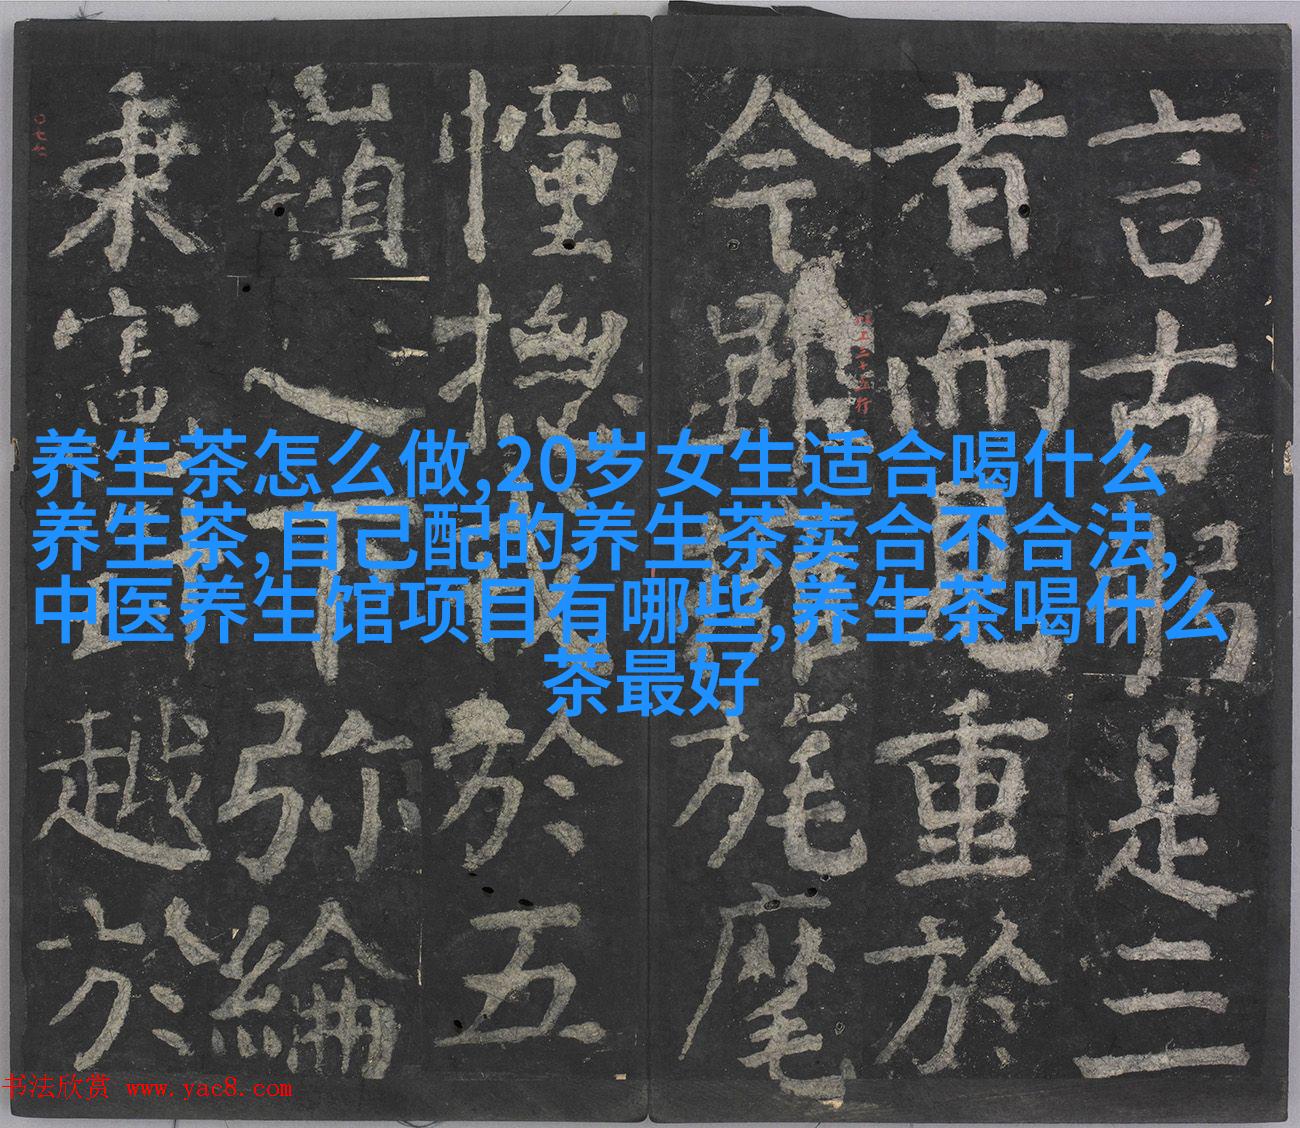 养生茶怎么做,20岁女生适合喝什么
养生茶,自己配的养生茶卖合不合法,
中医养生馆项目有哪些,养生茶喝什么
茶最好
言古是三
者而見重於
今旄麾
憧揔於五
嶺之下弥綸
秉越於
书法欣赏 www.yac8.com